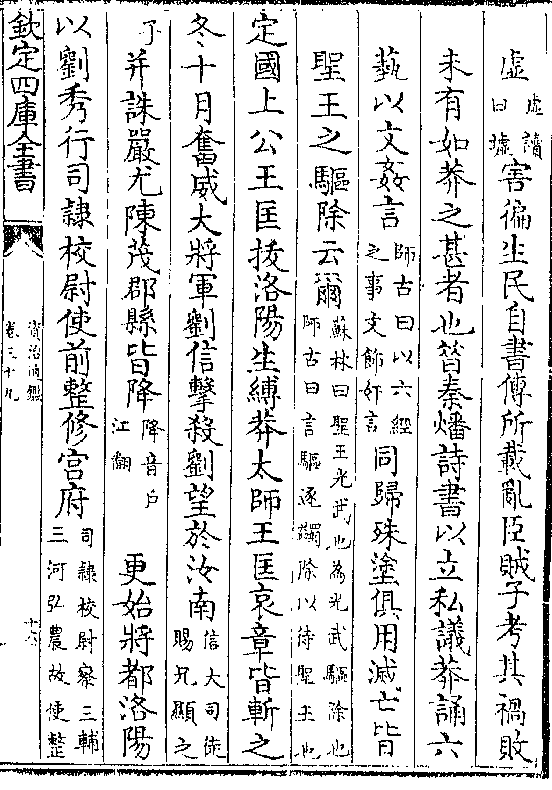 虚虚讀曰墟害徧生民自書傳所載亂臣賊子考其禍敗
未有如莽之甚者也昔秦燔詩書以立私議莽誦六
藝以文姦言師古曰以六經之事文飾奸言同歸殊塗俱用滅亡皆
聖王之驅除云爾蘇林曰聖王光武也為光武驅除也師古曰言驅逐蠲除以待聖王也
定國上公王匡拔洛陽生縛莽太師王匡哀章皆斬之
冬十月奮威大將軍劉信擊殺劉望於汝南信大司徒賜兄顯之
子并誅嚴尤陳茂郡縣皆降降音戶江翻更始將都洛陽
以劉秀行司隸校尉使前整修宫府司隸校尉察三輔三河弘農故使整
欽定四庫全書
資治通鑑
卷三十九
十六